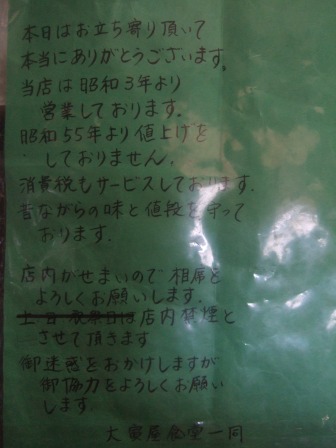 本日はお立ち寄り頂いて
本当にありがとうございます。
当店は昭和3年より
営業しております。
昭和55年より値上げを
しておりません。
消費税もサービスしております。
昔ながらの味と値段を守って
おります。
店内がせまいので相席を
よろしくお願いします。
土・日・祝祭日は店内禁煙と
させて頂きます
御迷惑をおかけしますが
御協力をよろしくお願い
します。
大寶屋食堂一同